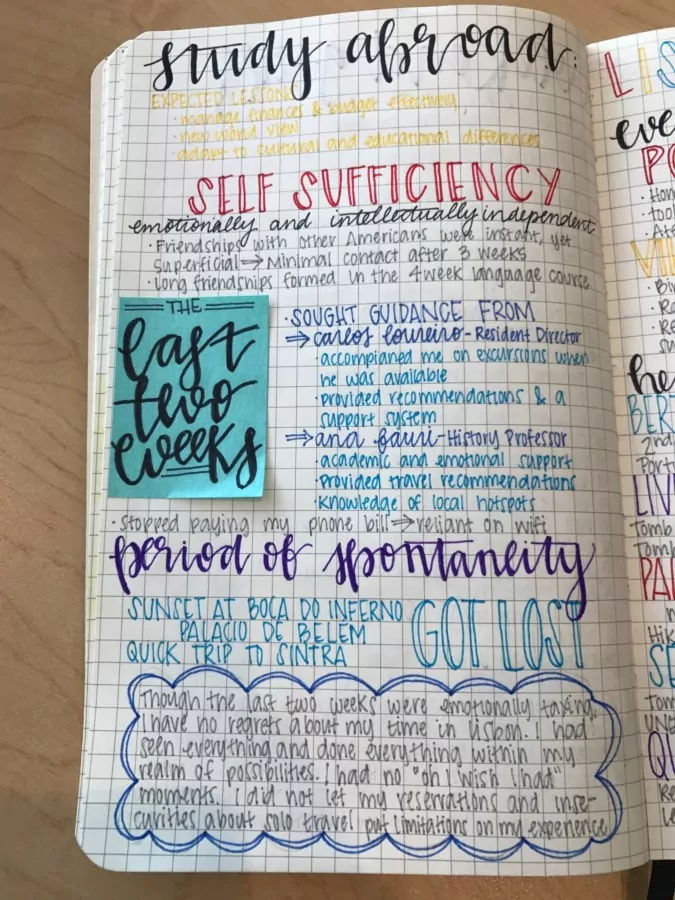 study abroad:
EXPECTED LESSONS
· manage finances & budget effectively
· new world view
· adapt to cultural and educational differences
SELF SUFFICIENCY
emotionally and intellectually independent
· Friendships with other Americans were instant, yet
superficial → Minimal contact after 3 weeks
· Long friendships formed in the 4 week language course
THE
last
two
weeks
· SOUGHT GUIDANCE FROM
⇒ carlos loureiro - Resident Director
· accompianed me on excursions when
he was available
· provided recommendations & a
support system
⇒ ana fauri - History Professor
· academic and emotional support
· provided travel recommendations
· knowledge of local hotspots
· Stopped paying my phone bill ⇒ reliant on wifi
period of spontaneity
SUNSET AT BOCA DO INFERNO
PALACIO DE BELEM
QUICK TRIP TO SINTRA
GOT LOST
Though the last two weeks were emotionally taxing,
I have no regrets about my time in Lisbon. I had
seen everything and done everything within my
realm of possibilities. I had no "oh I wish I had"
moments. I did not let my reservations and inse-
curities about solo travel put limitations on my experience
LIS
eve
PO
· Hom
· tool
· Ate
VIN
· Bi
· Ro
· Re
su
he
BER
2nd
Port
LIV
Tomb
Tomb
PA
Hik
SE
Tom
UNE
QU
Re
Le